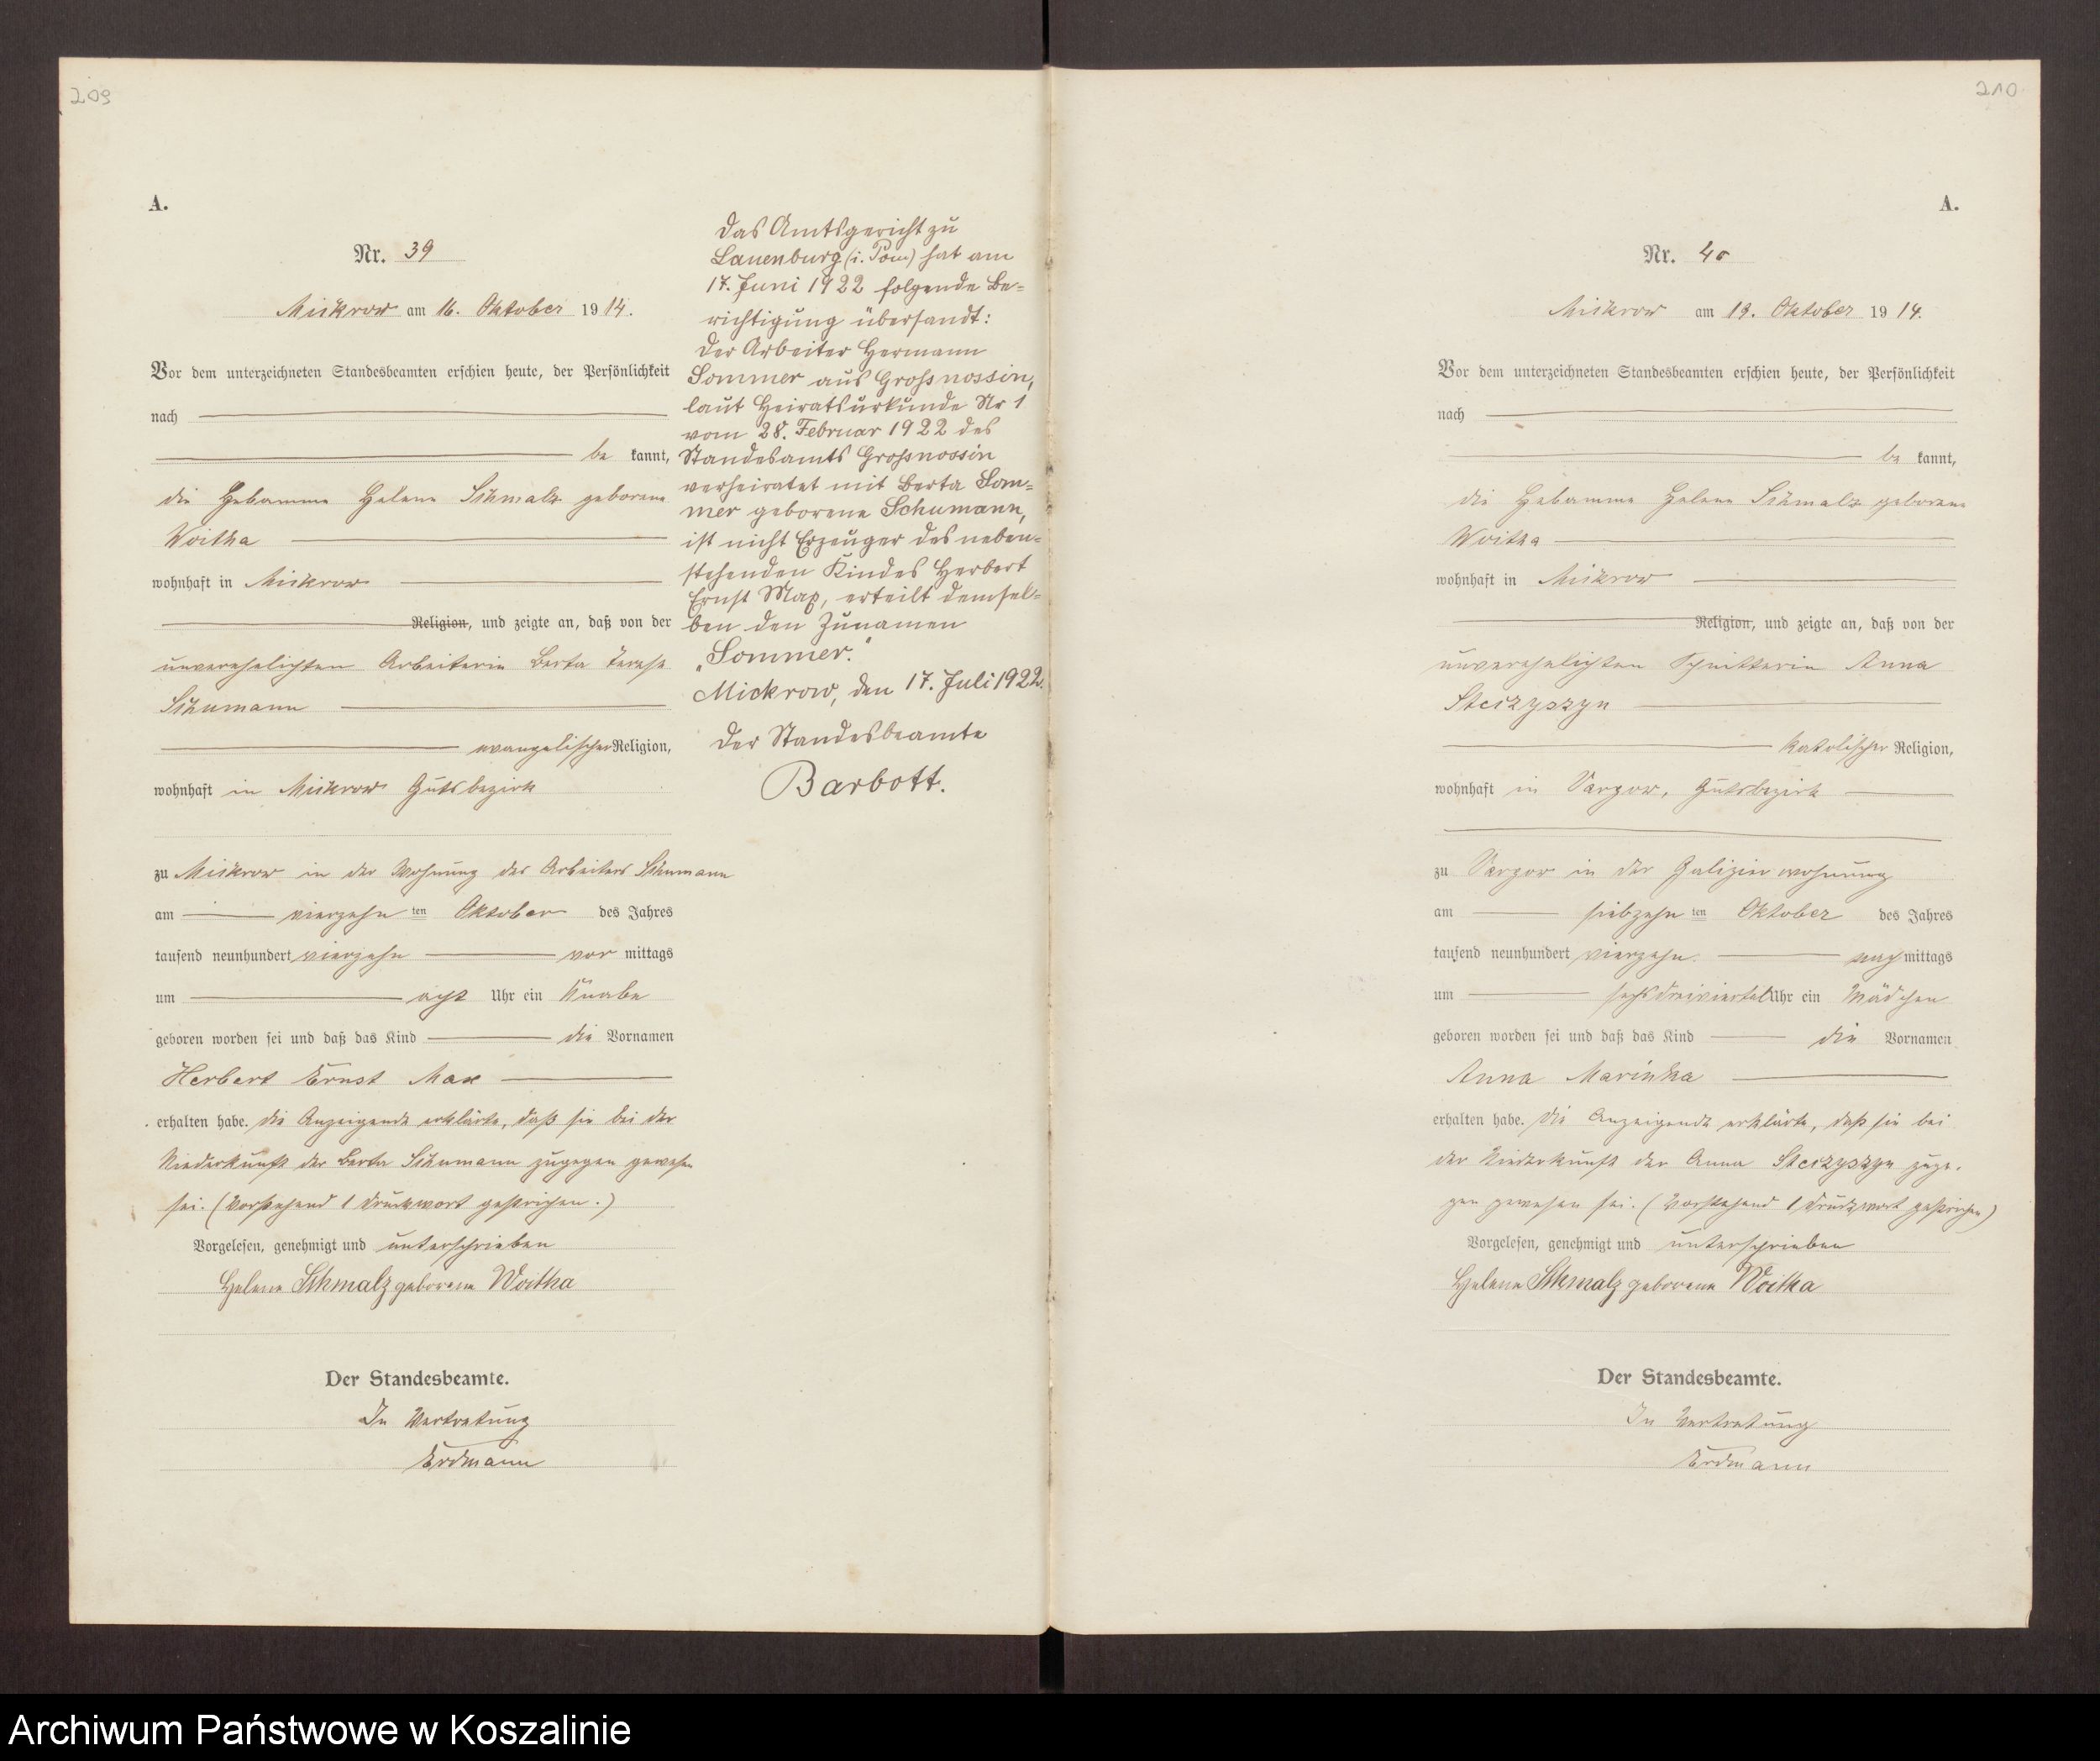 209
A.
Nr. 39
Mickrow am 16. Oktober 1914.
Vor dem unterzeichneten Standesbeamten erschien heute, der Persönlichkeit
nach
be kannt,
die Hebamme Helene Schmalz geborene
Woitha
wohnhaft in Mickrow
Religion, und zeigte an, daß von der
unverehelichten Arbeiterin Berta Terese
Schumann
evangelischer Religion,
wohnhaft in Mickrow Gutsbezirk
zu Mickrow in der Wohnung des Arbeiters Schumann
am vierzehn ten Oktober des Jahres
tausend neunhundert vierzehn vor mittags
um acht Uhr ein Knabe
geboren worden sei und daß das Kind die Vornamen
Herbert Ernst Max
erhalten habe. Die Anzeigende erklärte, daß sie bei der
Niederkunft der Berta Schumann zugegen gewesen
sei. (Vorstehend 1 Druckwort gestrichen.)
Vorgelesen, genehmigt und unterschrieben
Helene Schmalz geborene Woitha
Der Standesbeamte.
In Vertretung
Erdmann
Das Amtsgericht zu
Lauenburg (i. Pom) hat am
17. Juni 1922 folgende Be-
richtigung übersandt:
Der Arbeiter Hermann
Sommer aus Großnossin,
laut Heiratsurkunde Nr 1
vom 28. Februar 1922 des
Standesamts Großnossin
verheiratet mit Berta Som-
mer geborene Schumann,
ist nicht Erzeuger des neben-
stehenden Kindes Herbert
Ernst Max, erteilt demsel-
ben den Zunamen
„Sommer."
Mickrow, den 17. Juli 1922.
Der Standesbeamte
Barbott.
210
A.
Nr. 40
Mickrow am 19. Oktober 1914.
Vor dem unterzeichneten Standesbeamten erschien heute, der Persönlichkeit
nach
be kannt,
die Hebamme Helene Schmalz geborene
Woitha
wohnhaft in Mickrow
Religion, und zeigte an, daß von der
unverehelichten Schnitterin Anna
Steczyszyn
katolischer Religion,
wohnhaft in Vargow, Gutsbezirk
zu Vargow in der Galizierwohnung
am siebzehn ten Oktober des Jahres
tausend neunhundert vierzehn nach mittags
um sechsdreiviertel Uhr ein Mädchen
geboren worden sei und daß das Kind die Vornamen
Anna Marinka
erhalten habe. Die Anzeigende erklärte, daß sie bei
der Niederkunft der Anna Steczyszyn zuge-
gen gewesen sei. (Vorstehend 1 Druckwort gestrichen)
Vorgelesen, genehmigt und unterschrieben
Helene Schmalz geborene Woitha
Der Standesbeamte.
In Vertretung
Erdmann
Archiwum Państwowe w Koszalinie